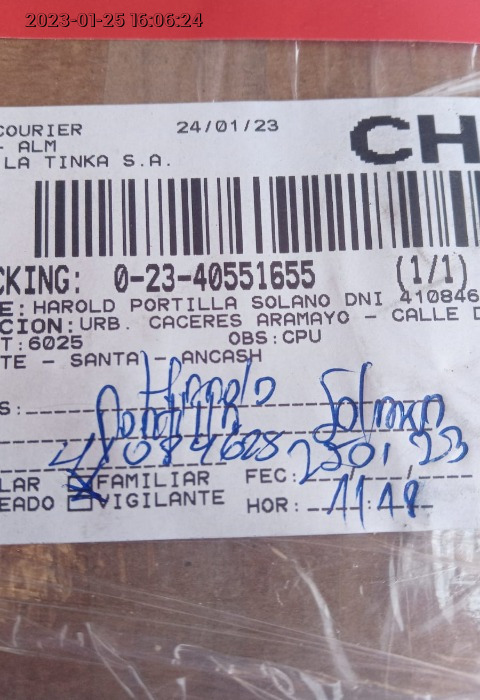 2023-01-25 16:06:24
COURIER 24/01/23 CH
- ALM
LA TINKA S.A.
CKING: 0-23-40551655 (1/1)
E: HAROLD PORTILLA SOLANO DNI 410846
CION: URB. CACERES ARAMAYO - CALLE D
T: 6025 OBS: CPU
TE - SANTA - ANCASH
Harold
S: Portilla Solano
41084608 25 01 23
LAR FAMILIAR FEC: / /
EADO VIGILANTE HOR: 11:18